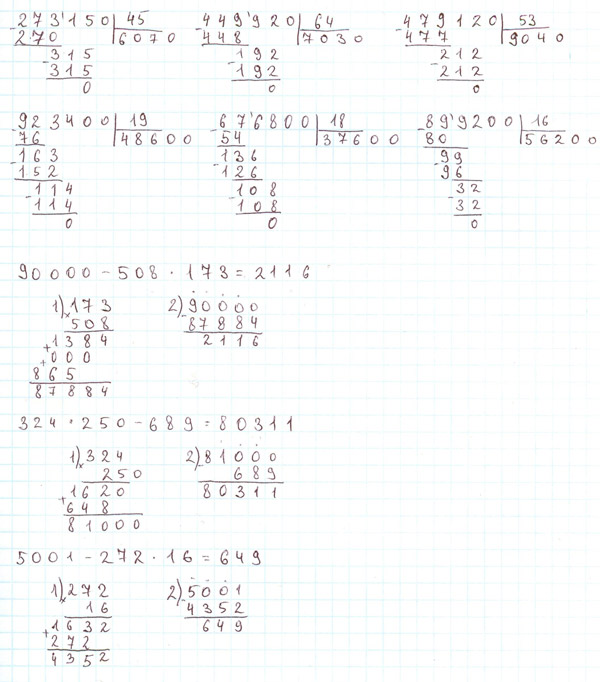 273'150 45 449'920 64 479120 53
-270 6070 -448 7030 -477 9040
-315 -192 212
315 192 -212
0 0 0
923400 19 67'6800 18 89'9200 16
-76 48600 -54 37600 -80 56200
-163 -136 -99
152 126 96
-114 -108 -32
114 108 32
0 0 0
90000 - 508 · 173 = 2116
1) × 173 2) -90000
508 87884
+1384 2116
+000
865
87884
324 · 250 - 689 = 80311
1) × 324 2) -81000
250 689
+1620 80311
648
81000
5001 - 272 · 16 = 649
1) × 272 2) -5001
16 4352
+1632 649
272
4352